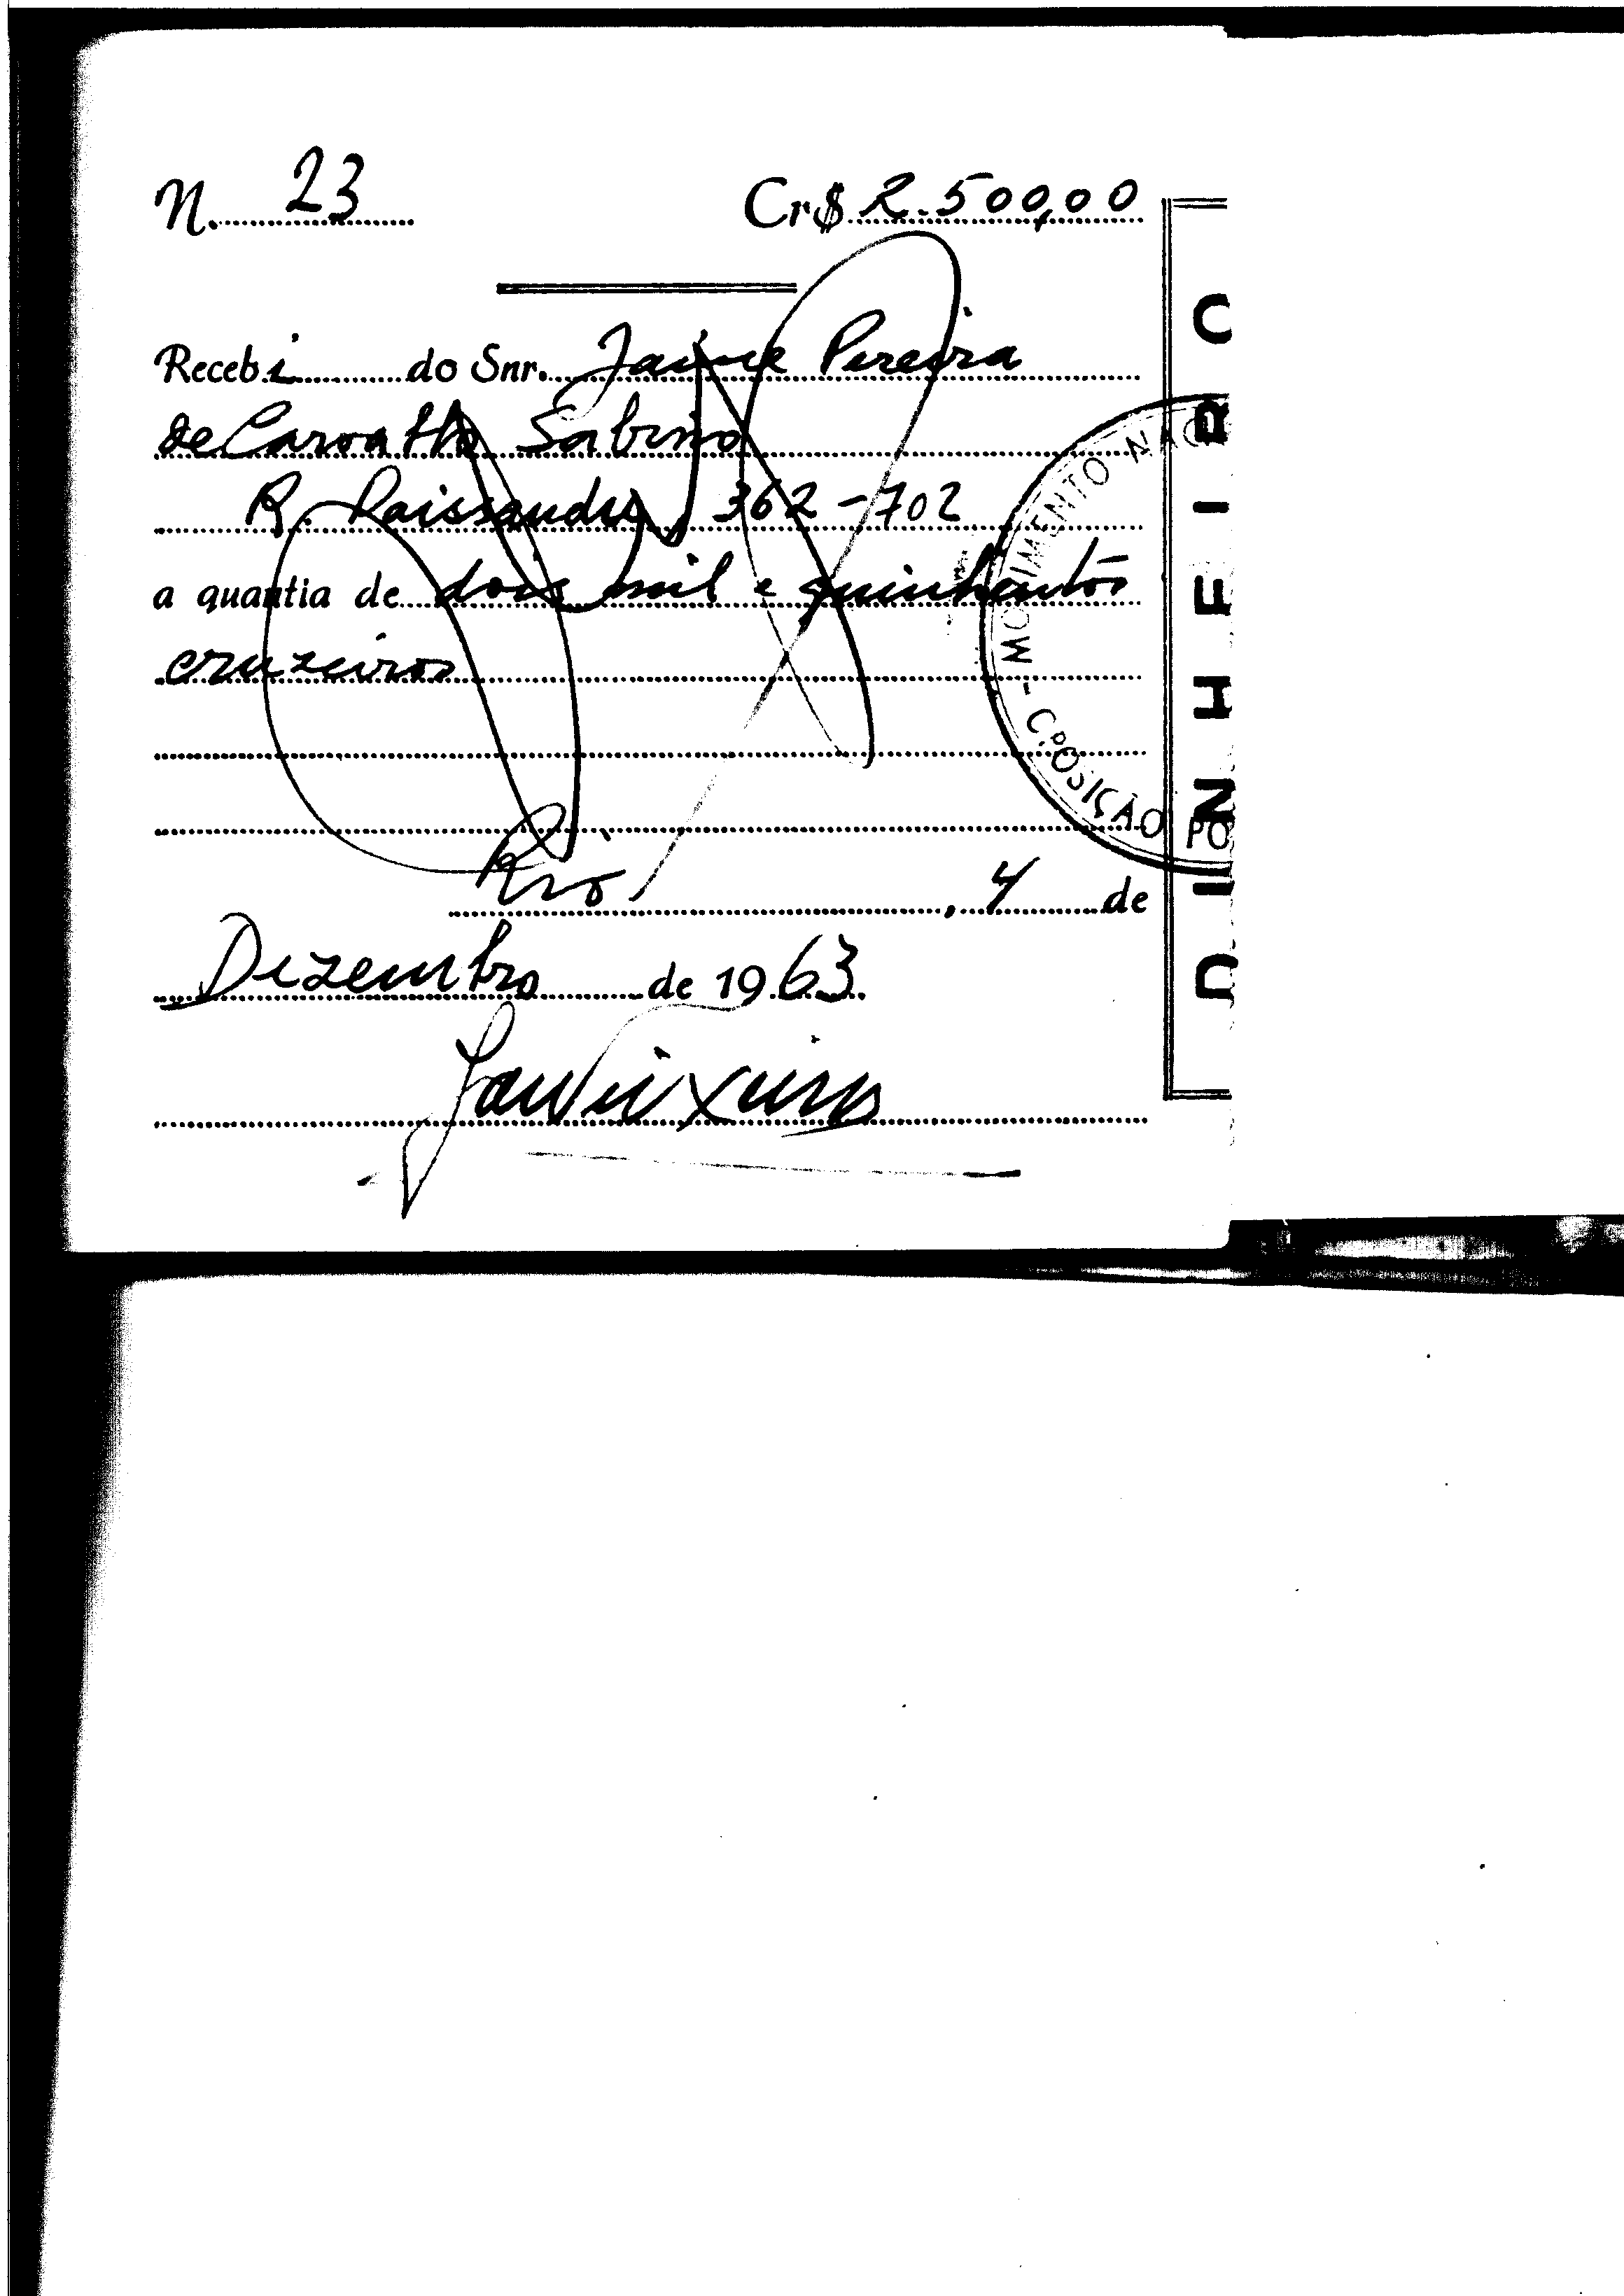 N. 23 Cr$ 2.500,00
Recebi do Snr. Jaime Pereira
de Carvalho Sabino
R. Paissandu, 362-702
a quantia de dois mil e quinhentos
cruzeiros
Rio, 4 de
Dezembro de 1963.
MOVIMENTO NAC
POSIÇÃO PO